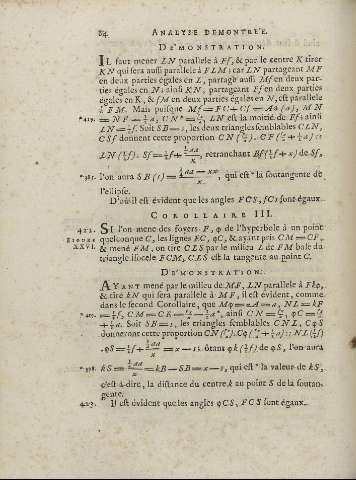 84. ANALYSE DEMONTRÉE.
DE'MONSTRATION.
IL faut mener LN parallele à Ff, & par le centre K tirer
KN qui sera aussi parallele à FLM; car LN partageant MF
en deux parties égales en L, partage aussi Mf en deux par-
ties égales en N; ainsi KN, partageant Ff en deux parties
égales en K, & fM en deux parties égales en N, est parallele
à FM. Mais puisque Mf = FC + Cf = Aa (a), MN
*419. = NF = ½a, CN * = , LN est la moitié de Ff; ainsi
LN = ½f. Soit SB = s, les deux triangles semblables CLN,
CSf donnent cette proportion CN
LN (½f). Sf = ½f + , retranchant Bf (½f + x) de Sf,
*385. l'on aura SB (s) = , qui est * la soutangente de
l'ellipse.
D'où il est évident que les angles FCS, fCs sont égaux.
COROLLAIRE III.
422. SI l'on mene des foyers F, φ de l'hyperbole à un point
FIGURE quelconque C, les lignes FC, φC, & ayant pris CM = CF,
XXVI. & mené FM, on tire CLS par le milieu L de FM base du
triangle isocele FCM, CLS est la tangente au point C.
DE'MONSTRATION.
AYANT mené par le milieu de MF, LN parallele à Fkφ,
& tiré kN qui sera parallele à MF, il est évident, comme
dans le second Corollaire, que Mφ = Aa = a, NL = kF
*419. = ½f, CM = CF = , ainsi CN = , φC =
+ ½a. Soit SB = s, les triangles semblables CNL, CφS
donneront cette proportion CN
. φS = ½f + = x — s; ôtant φk (½f) de φS, l'on aura
*398. kS = = kB — SB = x — s, qui est * la valeur de kS,
c'est-à-dire, la distance du centre k au point S de la soutan-
gente.
423. Il est évident que les angles φCS, FCS sont égaux.